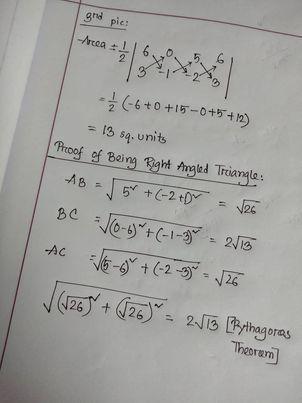 grid pic:
Area = ½ | 6 0 5 6
3 -1 -2 3 |
= ½ (-6+0+15-0+5+12)
= 13 sq. units
Proof of Being Right Angled Triangle:
AB = √(5² + (-2+1)²) = √26
BC = √((0-6)² + (-1-3)²) = 2√13
AC = √((5-6)² + (-2-3)²) = √26
√((√26)² + (√26)²) = 2√13 [Pythagoras
Theorem]